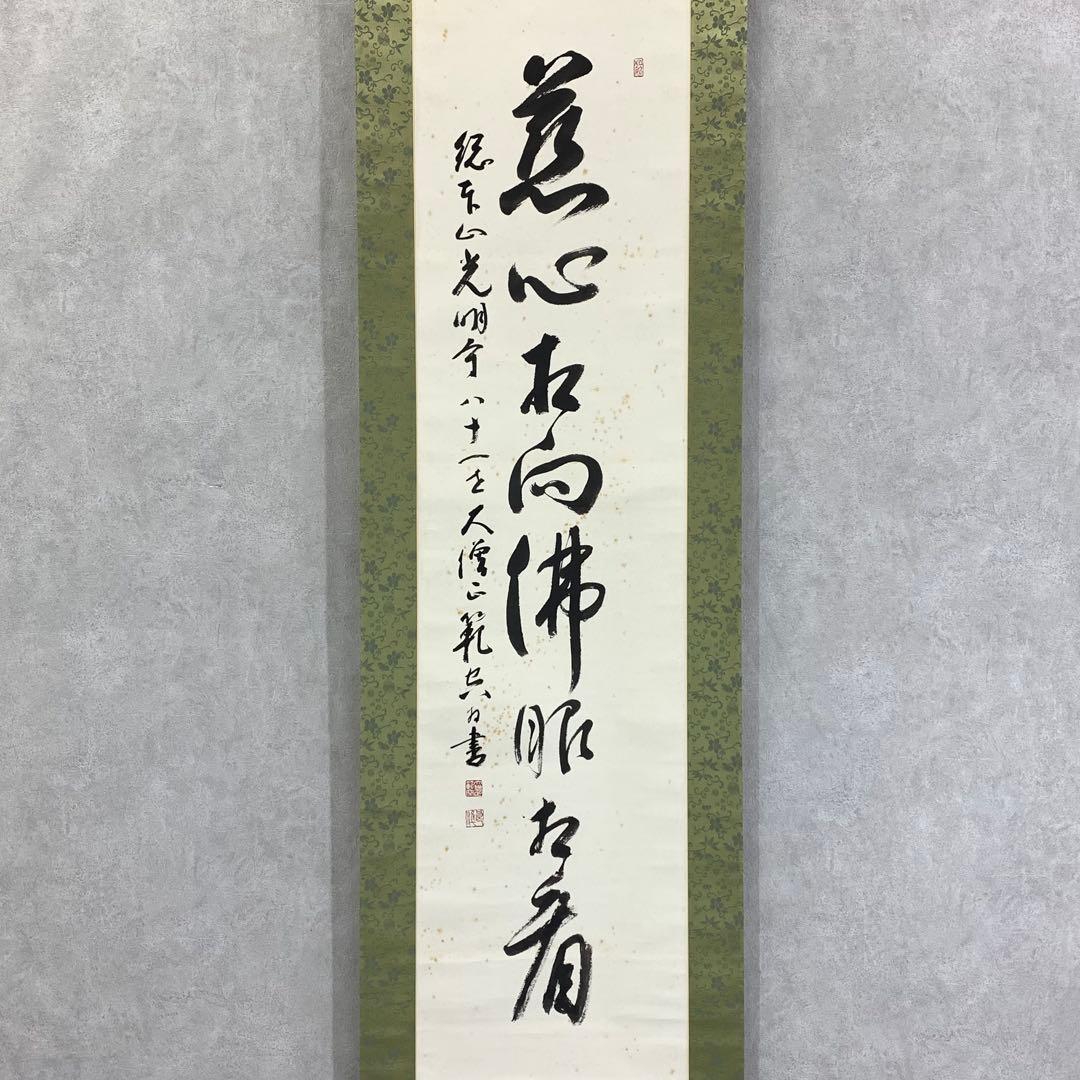 慈心相向佛眼相看
総本山光明寺八十一世大僧正範空書